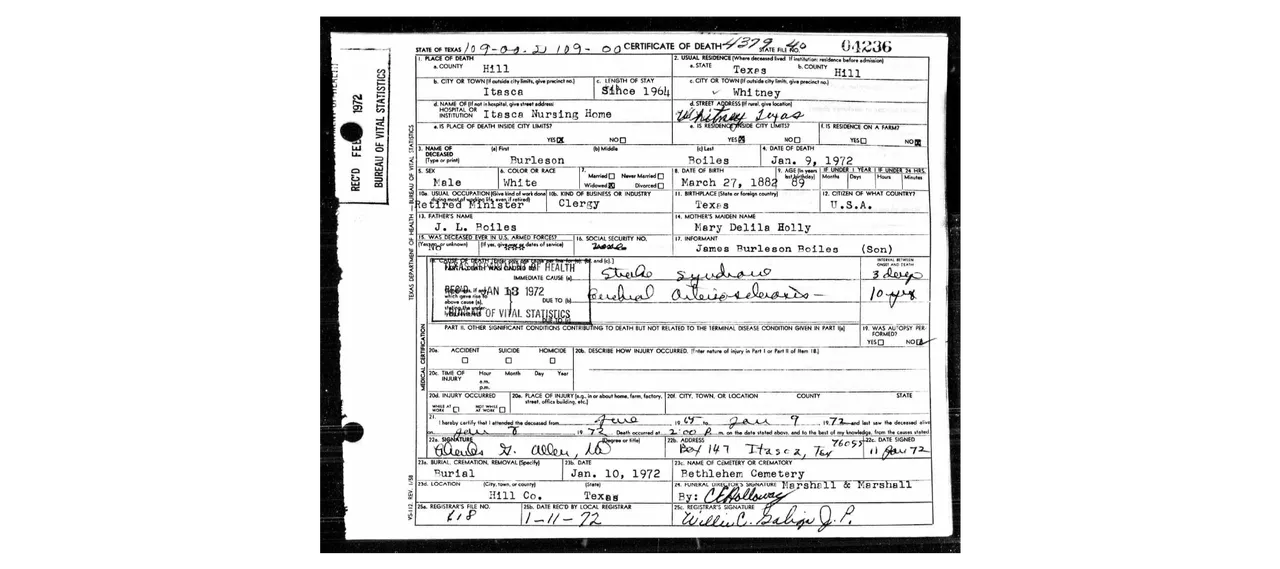 STATE OF TEXAS 109-00-2 109-00 CERTIFICATE OF DEATH 4379 STATE FILE NO. 40 04236
REC'D FEB 1972
BUREAU OF VITAL STATISTICS
TEXAS DEPARTMENT OF HEALTH — BUREAU OF VITAL STATISTICS
1. PLACE OF DEATH
a. COUNTY Hill
2. USUAL RESIDENCE (Where deceased lived. If institution: residence before admission)
a. STATE Texas b. COUNTY Hill
b. CITY OR TOWN (If outside city limits, give precinct no.) Itasca
c. LENGTH OF STAY Since 1964
c. CITY OR TOWN (If outside city limits, give precinct no.) Whitney
d. NAME OF (If not in hospital, give street address) HOSPITAL OR INSTITUTION Itasca Nursing Home
d. STREET ADDRESS (If rural, give location) Whitney Texas
e. IS PLACE OF DEATH INSIDE CITY LIMITS? YES NO
e. IS RESIDENCE INSIDE CITY LIMITS? YES NO
f. IS RESIDENCE ON A FARM? YES NO
3. NAME OF DECEASED (Type or print) (a) First Burleson (b) Middle (c) Last Boiles
4. DATE OF DEATH Jan. 9, 1972
5. SEX Male
6. COLOR OR RACE White
7. Married Never Married Widowed Divorced
8. DATE OF BIRTH March 27, 1882
9. AGE (In years last birthday) 89
IF UNDER 1 YEAR Months Days
IF UNDER 24 HRS. Hours Minutes
10a. USUAL OCCUPATION (Give kind of work done during most of working life, even if retired) Retired Minister
10b. KIND OF BUSINESS OR INDUSTRY Clergy
11. BIRTHPLACE (State or foreign country) Texas
12. CITIZEN OF WHAT COUNTRY? U.S.A.
13. FATHER'S NAME J. L. Boiles
14. MOTHER'S MAIDEN NAME Mary Delila Holly
15. WAS DECEASED EVER IN U.S. ARMED FORCES? (Yes, no, or unknown) No (If yes, give war or dates of service)
16. SOCIAL SECURITY NO.
17. INFORMANT James Burleson Boiles (Son)
18. CAUSE OF DEATH
PART I. DEATH WAS CAUSED BY:
IMMEDIATE CAUSE (a) Stroke Syndrome
INTERVAL BETWEEN ONSET AND DEATH 3 days
DUE TO (b) Cerebral Arteriosclerosis 10 yrs
OF HEALTH
REC'D JAN 13 1972
BUREAU OF VITAL STATISTICS
PART II. OTHER SIGNIFICANT CONDITIONS CONTRIBUTING TO DEATH BUT NOT RELATED TO THE TERMINAL DISEASE CONDITION GIVEN IN PART I(a)
19. WAS AUTOPSY PERFORMED? YES NO
MEDICAL CERTIFICATION
20a. ACCIDENT SUICIDE HOMICIDE
20b. DESCRIBE HOW INJURY OCCURRED. (Enter nature of injury in Part I or Part II of item 18.)
20c. TIME OF INJURY Hour a.m. p.m. Month Day Year
20d. INJURY OCCURRED WHILE AT WORK NOT WHILE AT WORK
20e. PLACE OF INJURY (e.g., in or about home, farm, factory, street, office building, etc.)
20f. CITY, TOWN, OR LOCATION COUNTY STATE
21. I hereby certify that I attended the deceased from June 19 to Jan 9 1972 and last saw the deceased alive
on Jan 1972 Death occurred at 2:00 P m. on the date stated above, and to the best of my knowledge, from the causes stated.
22a. SIGNATURE (Degree or title) Allen, MD
22b. ADDRESS Box 147 Itasca, Tex 76055
22c. DATE SIGNED 11 Jan 72
23a. BURIAL, CREMATION, REMOVAL (Specify) Burial
23b. DATE Jan. 10, 1972
23c. NAME OF CEMETERY OR CREMATORY Bethlehem Cemetery
23d. LOCATION (City, town, or county) Hill Co. (State) Texas
24. FUNERAL DIRECTOR'S SIGNATURE Marshall & Marshall
By: C E Holloway
25a. REGISTRAR'S FILE NO. 618
25b. DATE REC'D BY LOCAL REGISTRAR 1-11-72
25c. REGISTRAR'S SIGNATURE Willie C. J.P.
VS-112 REV. 1/58